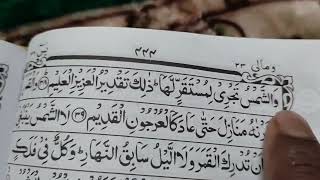 ومالی ۲۳
۴۴۴
وَالشَّمْسُ تَجْرِيْ لِمُسْتَقَرٍّ لَّهَا ؕ ذٰلِكَ تَقْدِيْرُ الْعَزِيْزِ الْعَلِيْمِ ﴿۳۸﴾
رْنٰهُ مَنَازِلَ حَتّٰى عَادَ كَالْعُرْجُوْنِ الْقَدِيْمِ ﴿۳۹﴾ لَا الشَّمْسُ
نْ تُدْرِكَ الْقَمَرَ وَلَا الَّيْلُ سَابِقُ النَّهَارِ ؕ وَكُلٌّ فِيْ فَلَكٍ